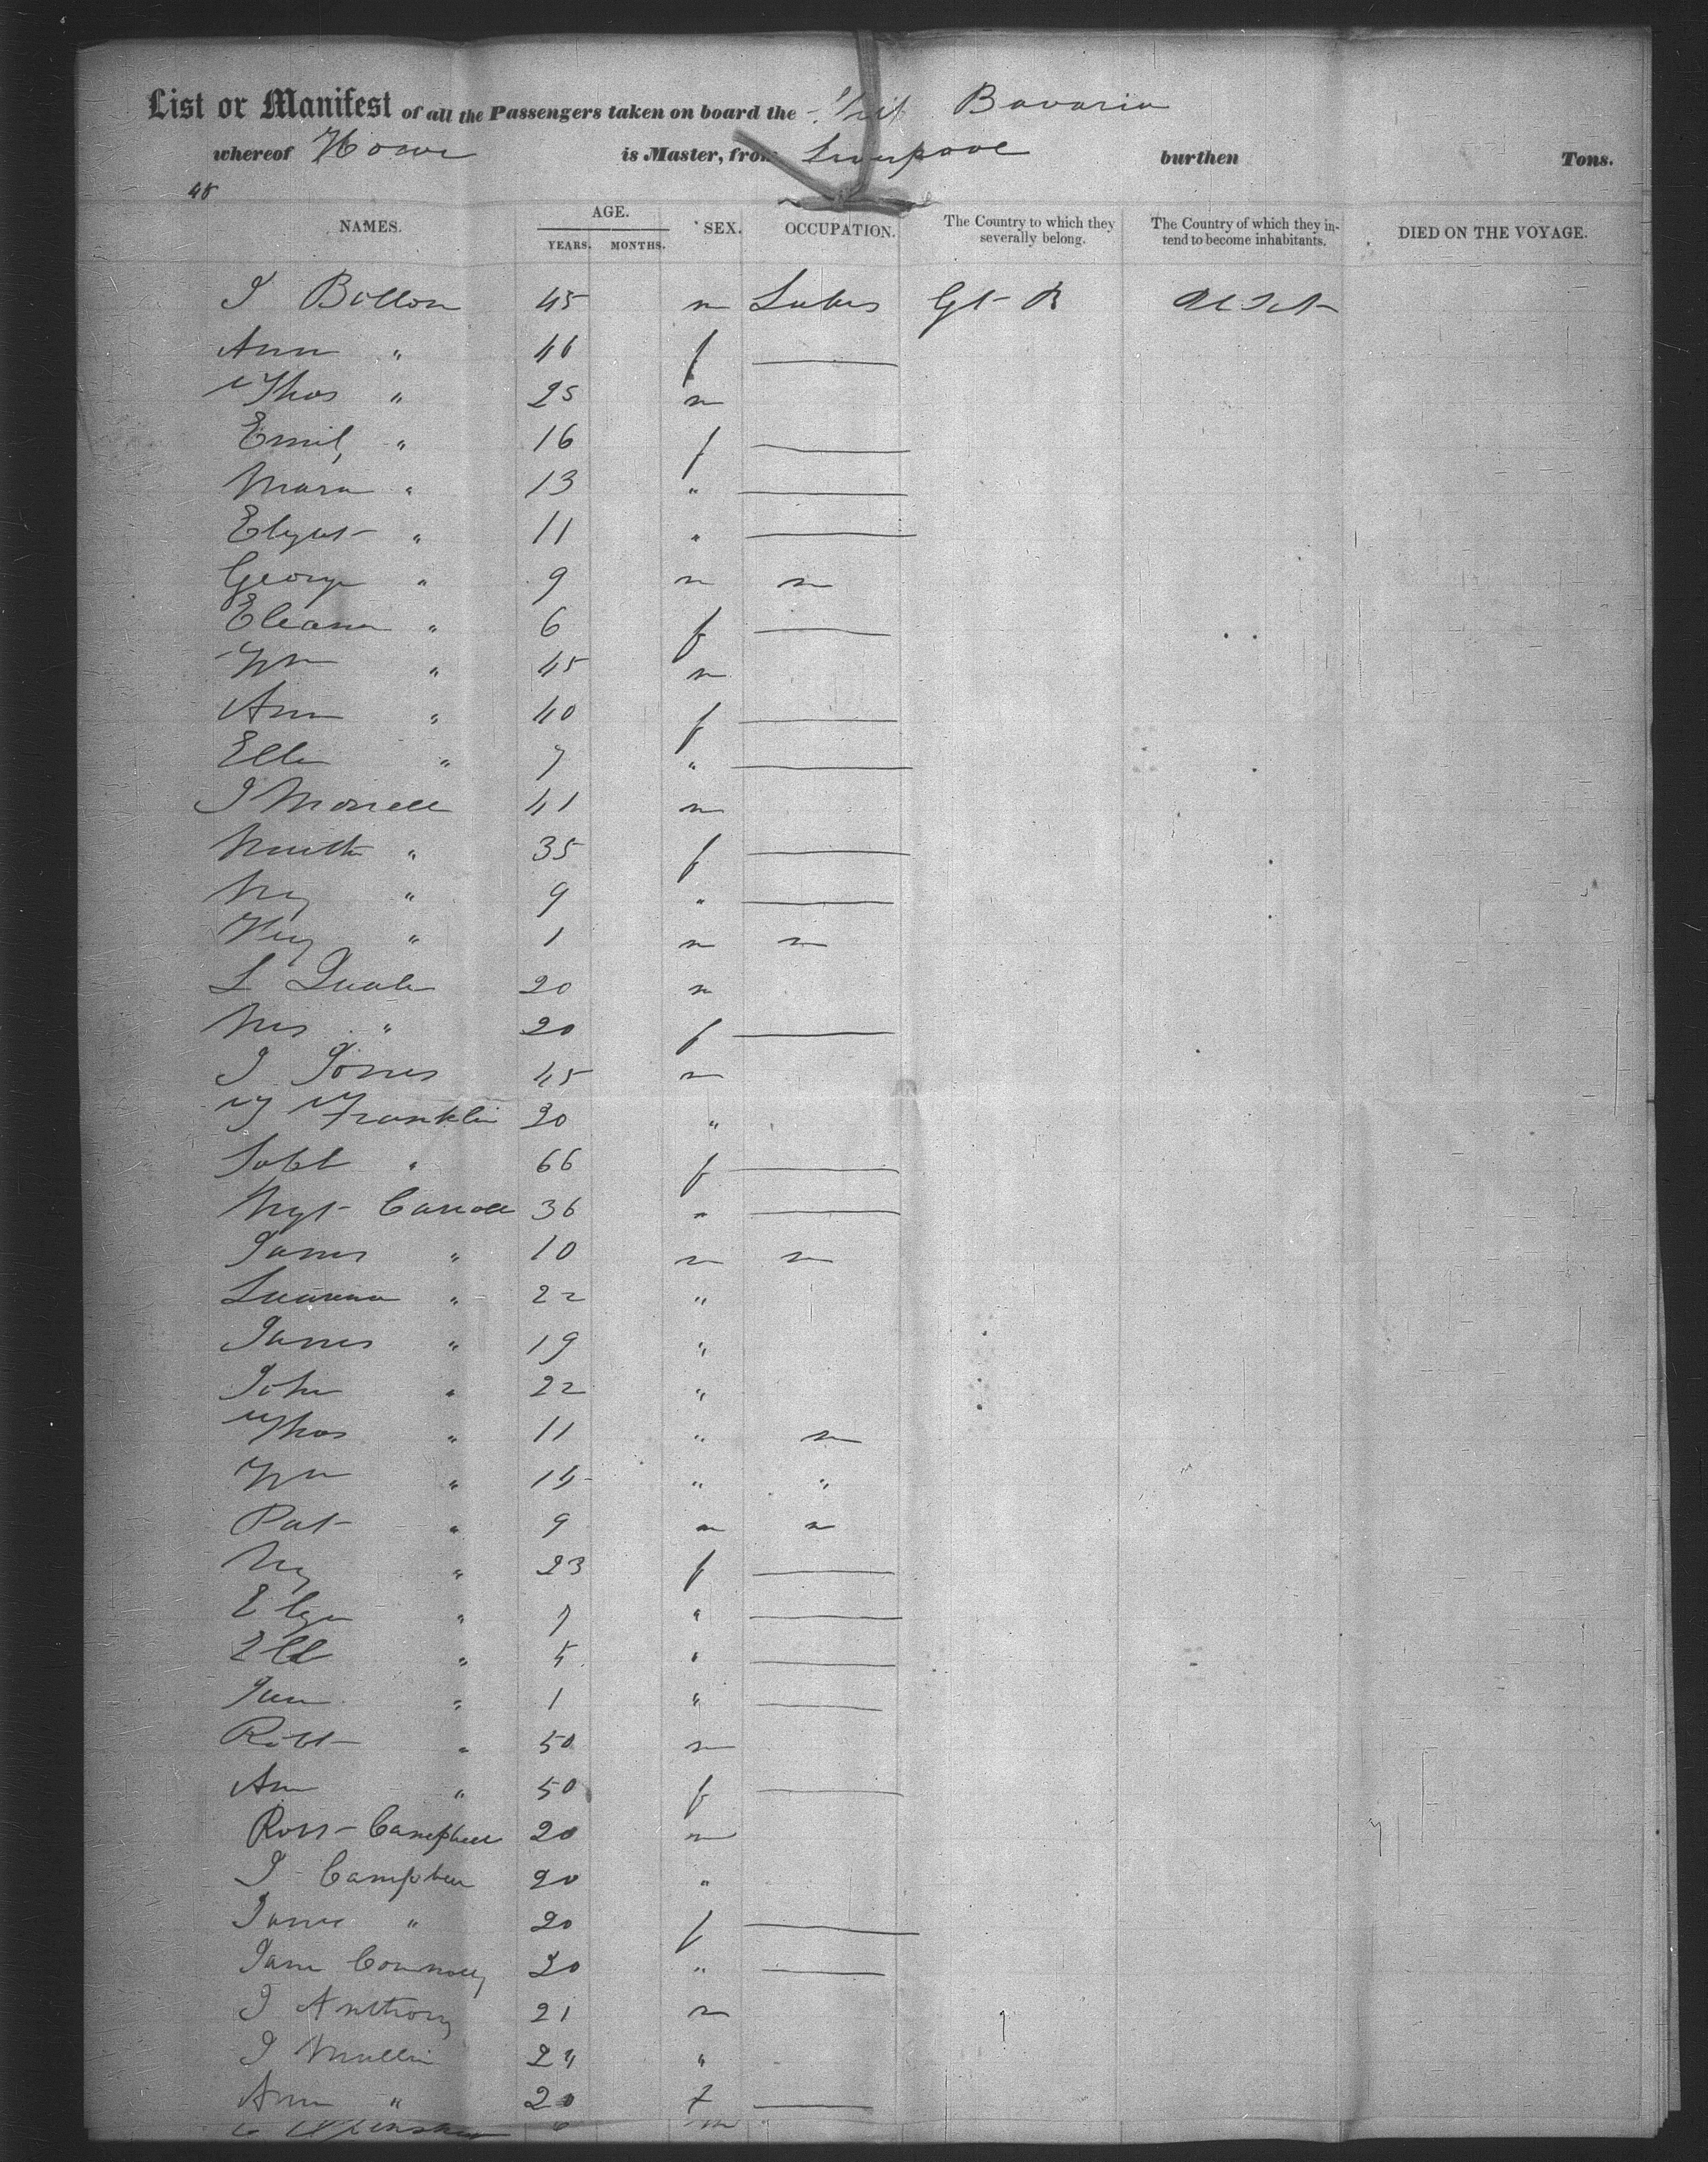 List or Manifest of all the Passengers taken on board the Ship Bavaria
whereof Howe is Master, from Liverpool burthen Tons.
48
NAMES. AGE. YEARS. MONTHS. SEX. OCCUPATION. The Country to which they severally belong. The Country of which they intend to become inhabitants. DIED ON THE VOYAGE.
J 45 m Gt B
Ann " 46 f
Thos " 25 m
Emily " 16 f
Mara " 13 "
" 11 "
George " 9 m m
Eleanor " 6 f
Wm " 45 m
Ann " 40 f
Ellen " 7 "
J 41 m
" 35 f
My " 9 "
" 1 m m
L 20 m
Mrs " 20 f
J Jones 45 m
T Franklin 30 "
" 66 f
Mgt Carroll 36 "
James " 10 m m
" 22 "
James " 19 "
John " 22 "
Thos " 11 " m
Wm " 14 " "
Pat " 9 m m
My " 23 f
Eliza " 7 "
" "
Jane " 1 "
Robt " 50 m
Ann " 50 f
Campbell 20 m
J Campbell 20 "
Jane " 20 f
Jane Connolly 30 "
J Anthony 21 m
J Mullin 24 "
Ann " 20 f
m